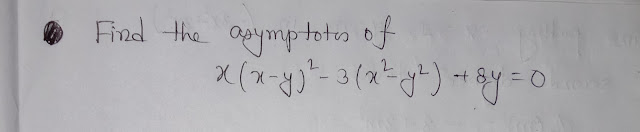 Find the asymptotes of
x(x-y)²-3(x²-y²)+8y=0